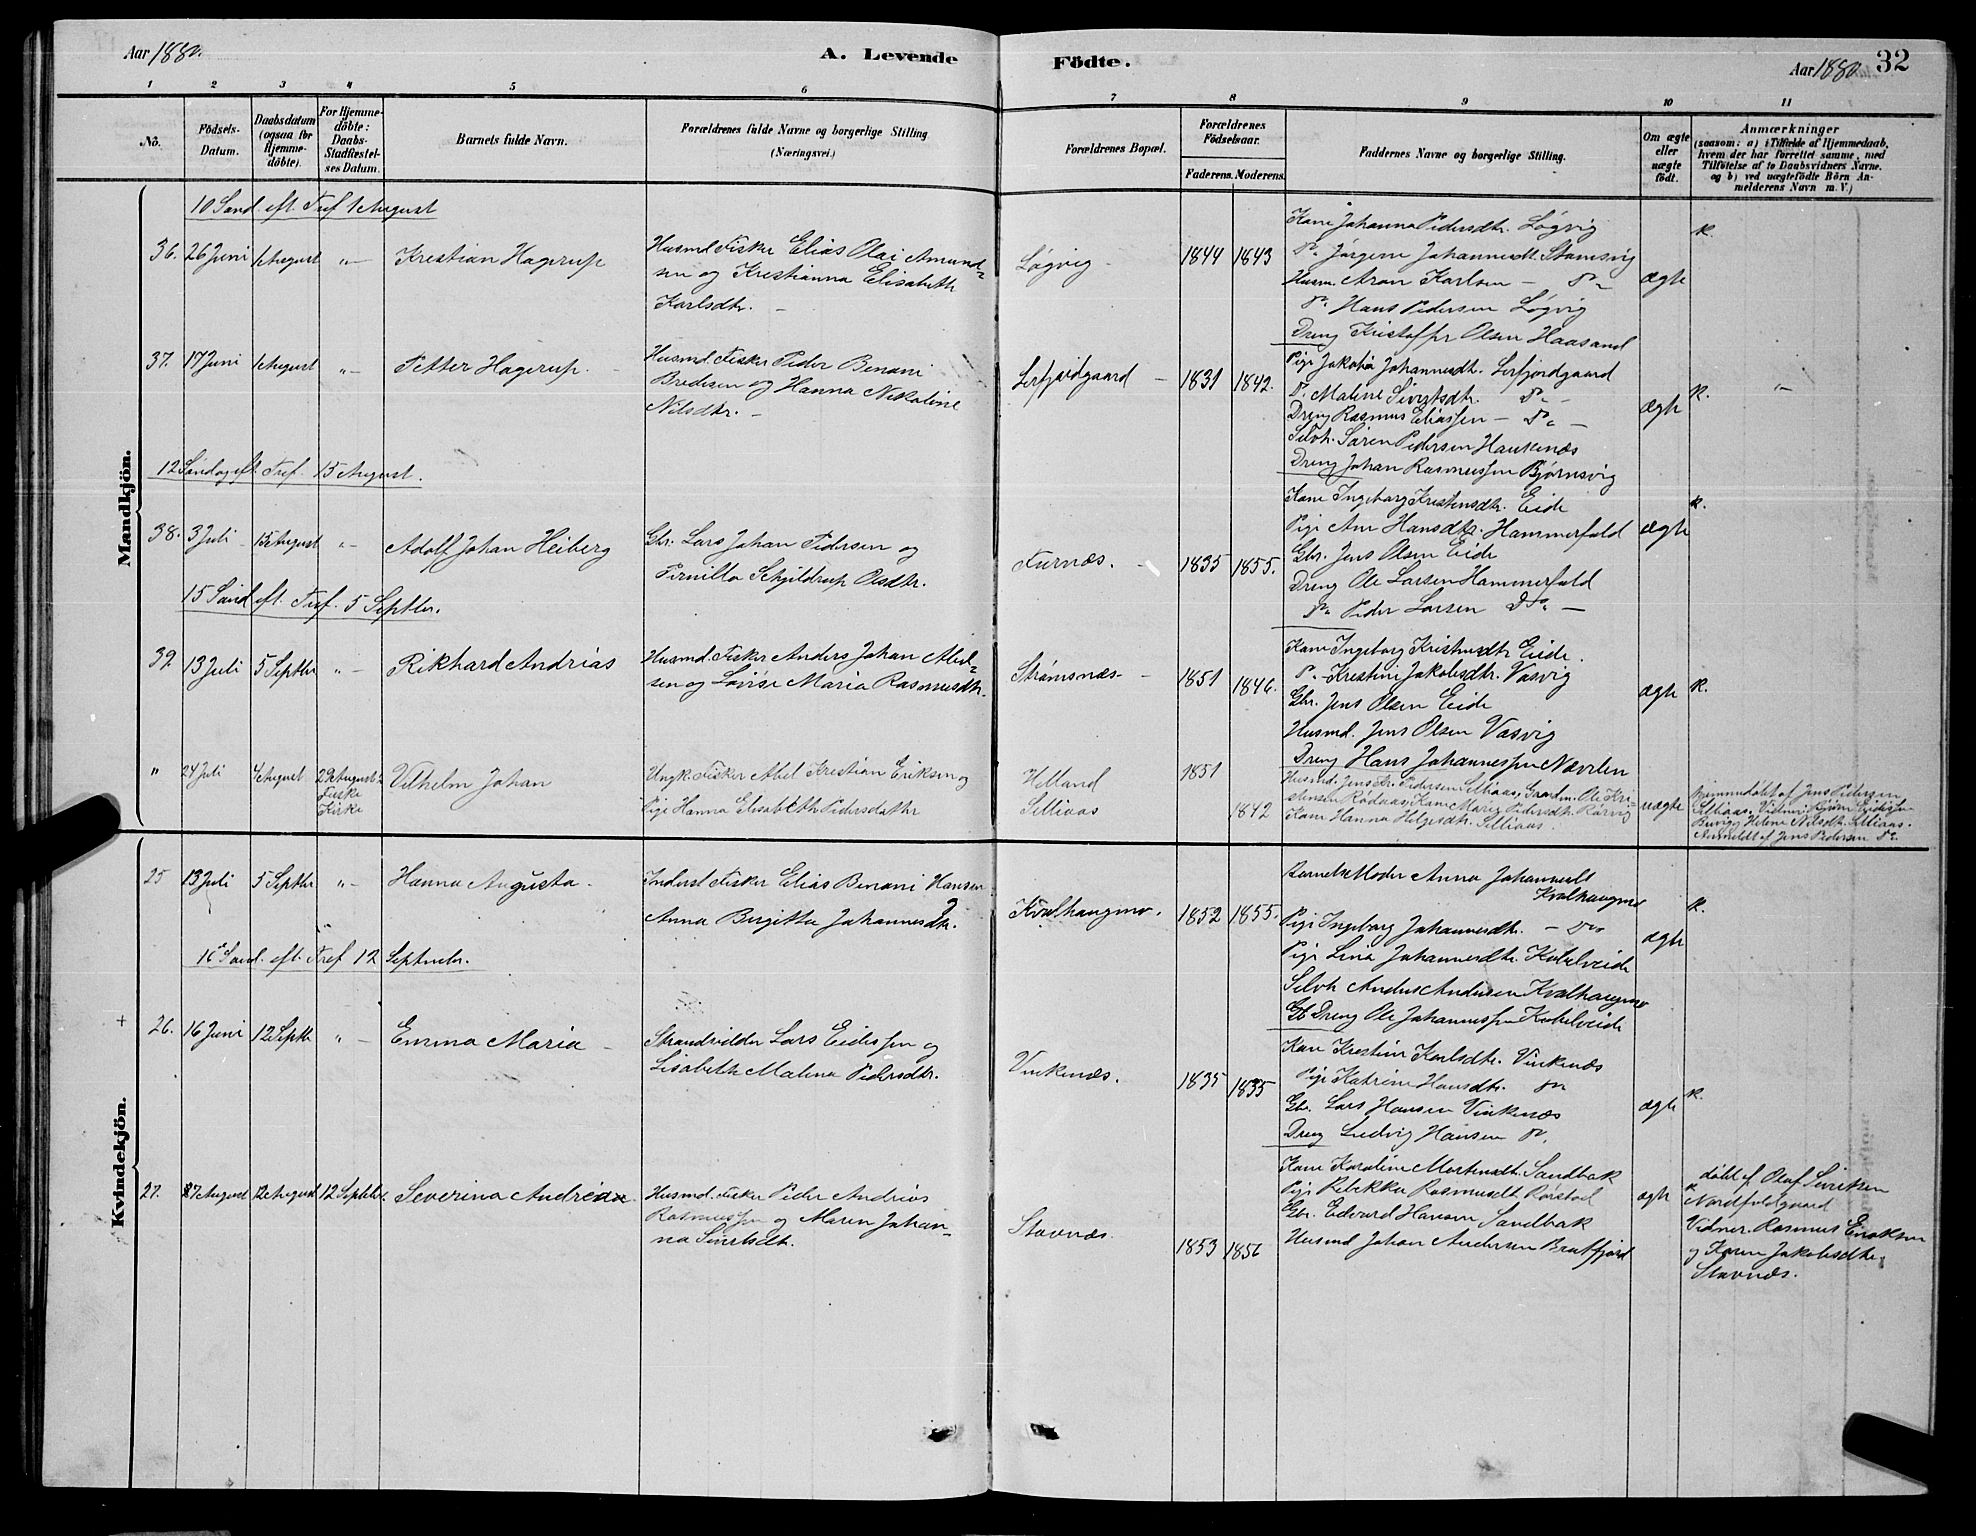 Aar 1880.
A. Levende Födte.
Aar 1880
32
1 2 3 4 5 6 7 8 9 10 11
No.
Födsels-Datum.
Daabsdatum (ogsaa for Hjemme-döbte).
For Hjemme-döbte: Daabs-Stadfæstel-ses Datum.
Barnets fulde Navn.
Forældrenes fulde Navne og borgerlige Stilling (Næringsvei.)
Forældrenes Bopæl.
Forældrenes Födselsaar.
Faderens. Moderens.
Faddernes Navne og borgerlige Stilling.
Om ægte eller uægte födt.
Anmærkninger
(saasom: a) i Tilfælde af Hjemmedaab, hvem der har forrettet samme, med Tilföielse af to Daabsvidners Navne, og b) ved uægtefödte Börn An-melderens Navn m. V.)
Mandkjön.
10 Sønd. eft. Tref 1 August
36. 26 Juni 1 August " - Kristian Hagerup
Husmd. Fisker Elias Olai Amund-
sen og Kristianna Elisabeth
Karlsdtr. -
Løgvig - 1844 1843
Kone Johanna Pedersdtr. Løgvig
Do Jørgine Johannesdt. Stamsvig
Husm. Aron Karlsen - Do
Do Hans Pedersen Løgvig
Dreng Kristoffer Olsen Haasand
ægte K.
37. 17 Juni 1 August " - Petter Hagerup. -
Husmd. Fisker Peder Benoni
Bredesen og Hanna Nikoline
Nilsdtr. -
Lerfjordgaard - 1831 1842.
Pige Jakobia Johannesdt. Lerfjordgaard
Do Malene Sivertsdtr. Do -
Dreng Rasmus Eliassen - Do -
Selvh. Søren Pedersen Haukenæs
Dreng Johan Rasmussen Bjørnsvig
ægte K. " -
12 Søndag eft. Tref. 15 August.
38. 3 Juli - 15 August " - Adolf Johan Heiberg
Gbr. Lars Johan Pedersen og
Pernilla Schjeldrup Olsdtr.
Furnæs. - 1835 1855.
Kone Ingeborg Kristensdtr. Eide
Pige Ane Hansdtr. Hammerfald
Gbr. Jens Olsen Eide
Dreng Ole Larsen Hammerfald
Do Peder Larsen Do -
ægte K.
15 Sønd eft. Tref. 5 Septbr.
39. 13 Juli 5 Septbr " - Rikhard Andrias
Husmd. Fisker Anders Johan Abel-
sen og Lovise Maria Rasmusdtr.
Strømsnæs - 1851 1846.
Kone Ingeborg Kristensdtr Eide.
Do - Krestine Jakobsdtr. Vasvig
Gbr. Jens Olsen Eide
Husmd. Jens Olsen Vasvig
Dreng Hans Johannessen Nævelen
ægte K.
" 24 Juli 4 August 29 August Vilhelm Johan
Ungk. Fisker Abel Kristian Eriksen og
Pige Hanna Elisabeth Pedersdatter
Helland
Selliaas
1851
1842
Husmd. Jens Pedersen Selliaas, Gaardm. Ole Kri-
stensen Rødaas, Kone Maria Pedersdtr. Rørvig
Kone Hanna Helgesdtr. Selliaas.
uægte
Hjemmedøbt af Jens Pedersen
Selliaas, Vidner: Bjørn
og Helena Nilsdtr. Selliaas.
Anmeldt af Jens Pedersen Do
Kvindekjön.
25 13 Juli 5 Septbr " - Hanna Augusta -
Inderst Fisker Elias Benoni Hansen
Anna Birgitta Johannesdtr.
Kvalhaugmo. 1852 1855.
Barnets Moder Anna Johannesdt
Kvalhaugmo
Pige Ingeborg Johannesdtr. - Do
Pige Lina Johannesdtr. Kobelveide
Selvh Anders Andersen Kvalhaugmo
Gb Dreng Ole Johannessen Kobelveide
ægte K.
16 Sønd. eft. Tref 12 Septembr.
+ 26. 16 Juni 12 Septbr " - Emma Maria -
Strandsidder Lars Eidissen og
Lisabeth Malena Pedersdtr.
Vinkenæs. 1835 1835
Kone Krestine Karlsdtr. Vinkenæs
Pige Katrine Hansdtr. Do
Gbr. Lars Hansen Vinkenæs
Dreng Ludvig Hansen Do.
ægte K.
27. 7 August 12 August 12 Septbr. Severina Andrea
Husmd. Fisker Peder Andrias
Rasmussen og Maren Johan-
na Sivertsdt.
Stavnæs. 1853 1856
Kone Karoline Mortensdt. Sandbak
Pige Rebekka Rasmusdt. Rørstad
Gbr. Edvard Hansen Sandbak
Husmd Johan Andersen Bratfjord
ægte
døbt af Olaf Sivertsen
Nordfoldgaard
Vidner. Rasmus Enoksen
og Karen Jakobsdtr.
Stavnæs.